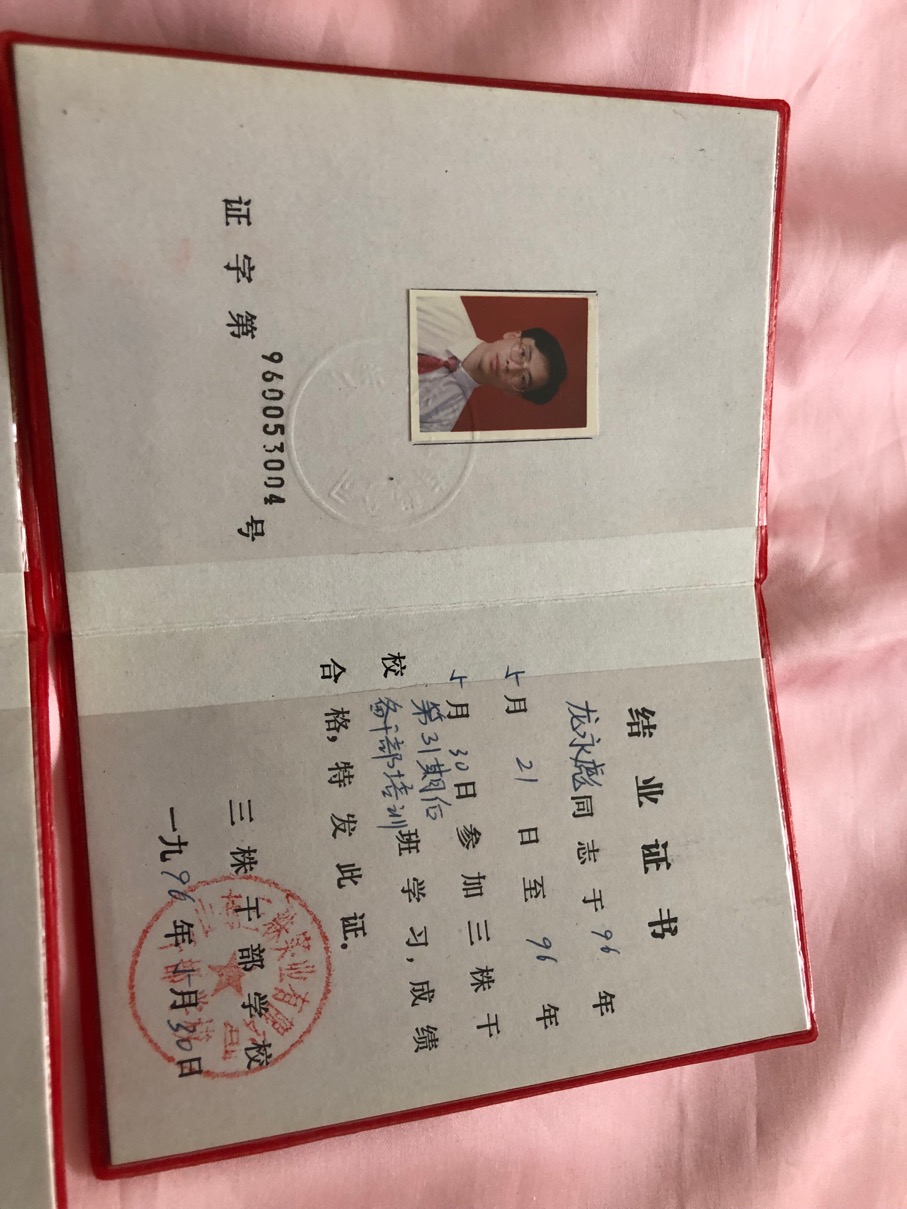 证字第960053004号
结业证书
龙永彪同志于96年
十月21日至96年
十月30日参加三株干
校第31期后备干部培训班学习，成绩
合格，特发此证。
三株干部学校
一九96年十月30日